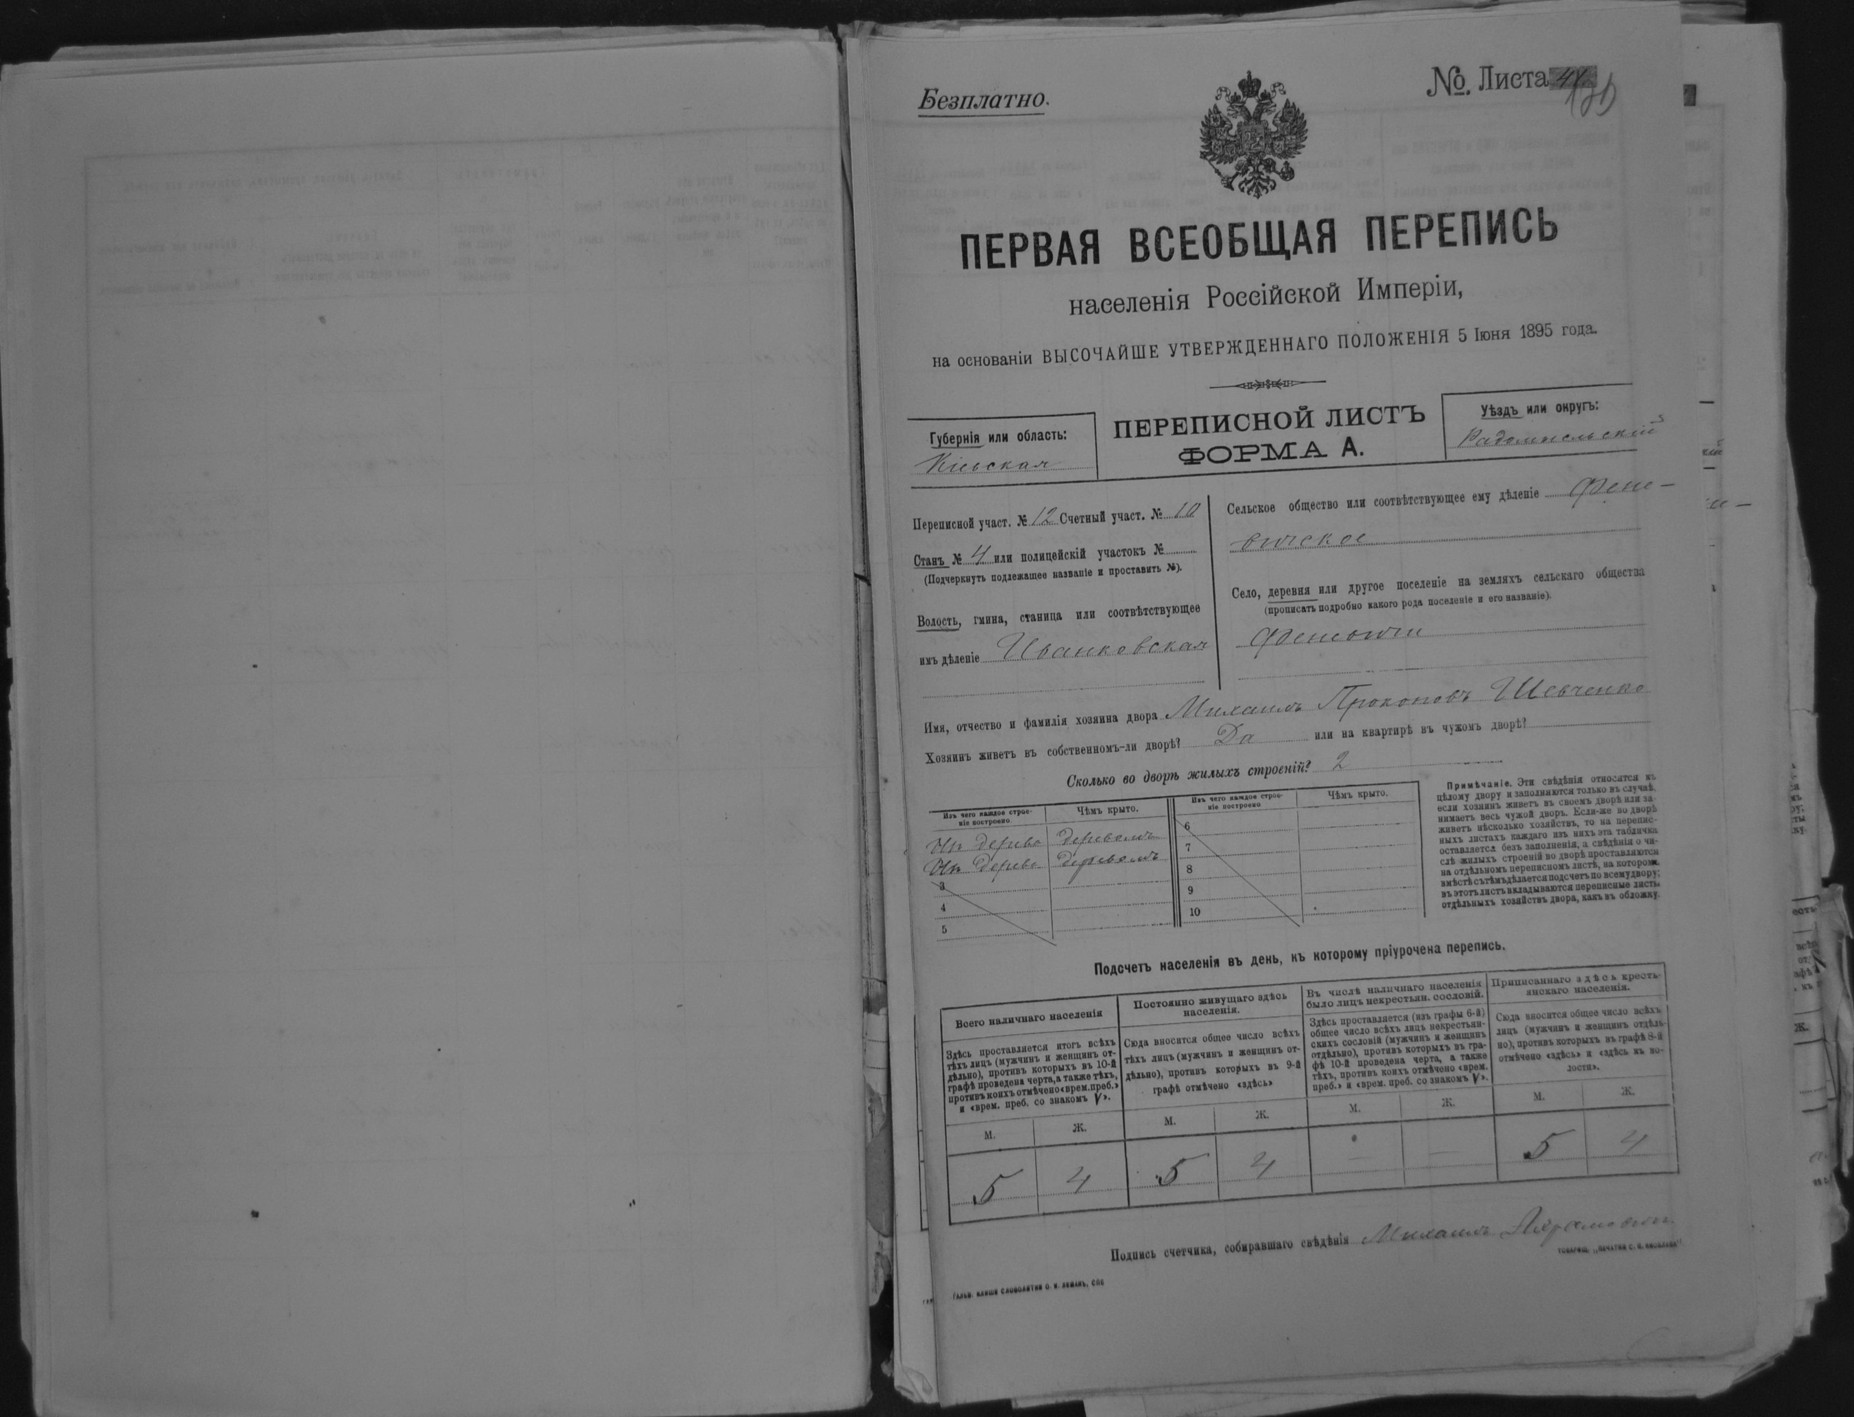 Безплатно.
№. Листа
ПЕРВАЯ ВСЕОБЩАЯ ПЕРЕПИСЬ
населенія Россійской Имперіи,
на основаніи ВЫСОЧАЙШЕ УТВЕРЖДЕННАГО ПОЛОЖЕНІЯ 5 Іюня 1895 года.
Губернія или область:
Кіевская
ПЕРЕПИСНОЙ ЛИСТЪ
ФОРМА А.
Уѣздъ или округъ:
Радомысльскій
Переписной участ. № 12 Счетный участ. № 10
Станъ № 4 или полицейскій участокъ №
(Подчеркнуть подлежащее названіе и проставить №).
Волость, гмина, станица или соотвѣтствующее
имъ дѣленіе Иванковская
Сельское общество или соотвѣтствующее ему дѣленіе Фене-
вичское
Село, деревня или другое поселеніе на земляхъ сельскаго общества
(прописать подробно какого рода поселеніе и его названіе).
Феневичи
Имя, отчество и фамилія хозяина двора Михаилъ Прокоповъ Шевченко
Хозяинъ живетъ въ собственномъ-ли дворѣ? Да или на квартирѣ въ чужомъ дворѣ?
Сколько во дворѣ жилыхъ строеній? 2
Изъ чего каждое строе-
ніе построено.
Чѣмъ крыто.
Изъ дерева деревомъ
Изъ дерева деревомъ
3
4
5
Изъ чего каждое строе-
ніе построено
Чѣмъ крыто.
6
7
8
9
10
Примѣчаніе. Эти свѣдѣнія относятся къ
цѣлому двору и заполняются только въ случаѣ,
если хозяинъ живетъ въ своемъ дворѣ или за-
нимаетъ весь чужой дворъ. Если-же во дворѣ
живетъ нѣсколько хозяйствъ, то на перепис-
ныхъ листахъ каждаго изъ нихъ эта табличка
оставляется безъ заполненія, а свѣдѣнія о чи-
слѣ жилыхъ строеній во дворѣ проставляются
на отдѣльномъ переписномъ листѣ, на которомъ
вмѣстѣ съ тѣмъ дѣлается подсчетъ по всему двору;
въ этотъ листъ вкладываются переписные листы
отдѣльныхъ хозяйствъ двора, какъ въ обложку.
Подсчетъ населенія въ день, къ которому пріурочена перепись.
Всего наличнаго населенія
Здѣсь проставляется итогъ всѣхъ
тѣхъ лицъ (мужчинъ и женщинъ от-
дѣльно), противъ которыхъ въ 10-й
графѣ проведена черта, а также тѣхъ,
противъ коихъ отмѣчено «врем. преб.»
и «врем. преб. со знакомъ V».
М. Ж.
5 4
Постоянно живущаго здѣсь
населенія.
Сюда вносится общее число всѣхъ
тѣхъ лицъ (мужчинъ и женщинъ от-
дѣльно), противъ которыхъ въ 9-й
графѣ отмѣчено «здѣсь»
М. Ж.
5 4
Въ числѣ наличнаго населенія
было лицъ некрестьян. сословій.
Здѣсь проставляется (изъ графы 6-й)
общее число всѣхъ лицъ некрестьян-
скихъ сословій (мужчинъ и женщинъ
отдѣльно), противъ которыхъ въ гра-
фѣ 10-й проведена черта, а также
тѣхъ, противъ коихъ отмѣчено «врем.
преб.» и «врем. преб. со знакомъ V».
М. Ж.
— —
Приписаннаго здѣсь кресть-
янскаго населенія.
Сюда вносится общее число всѣхъ
лицъ (мужчинъ и женщинъ отдѣль-
но), противъ которыхъ въ графѣ 8-й
отмѣчено «здѣсь» и «здѣсь въ во-
лости».
М. Ж.
5 4
Подпись счетчика, собиравшаго свѣдѣнія Михаилъ